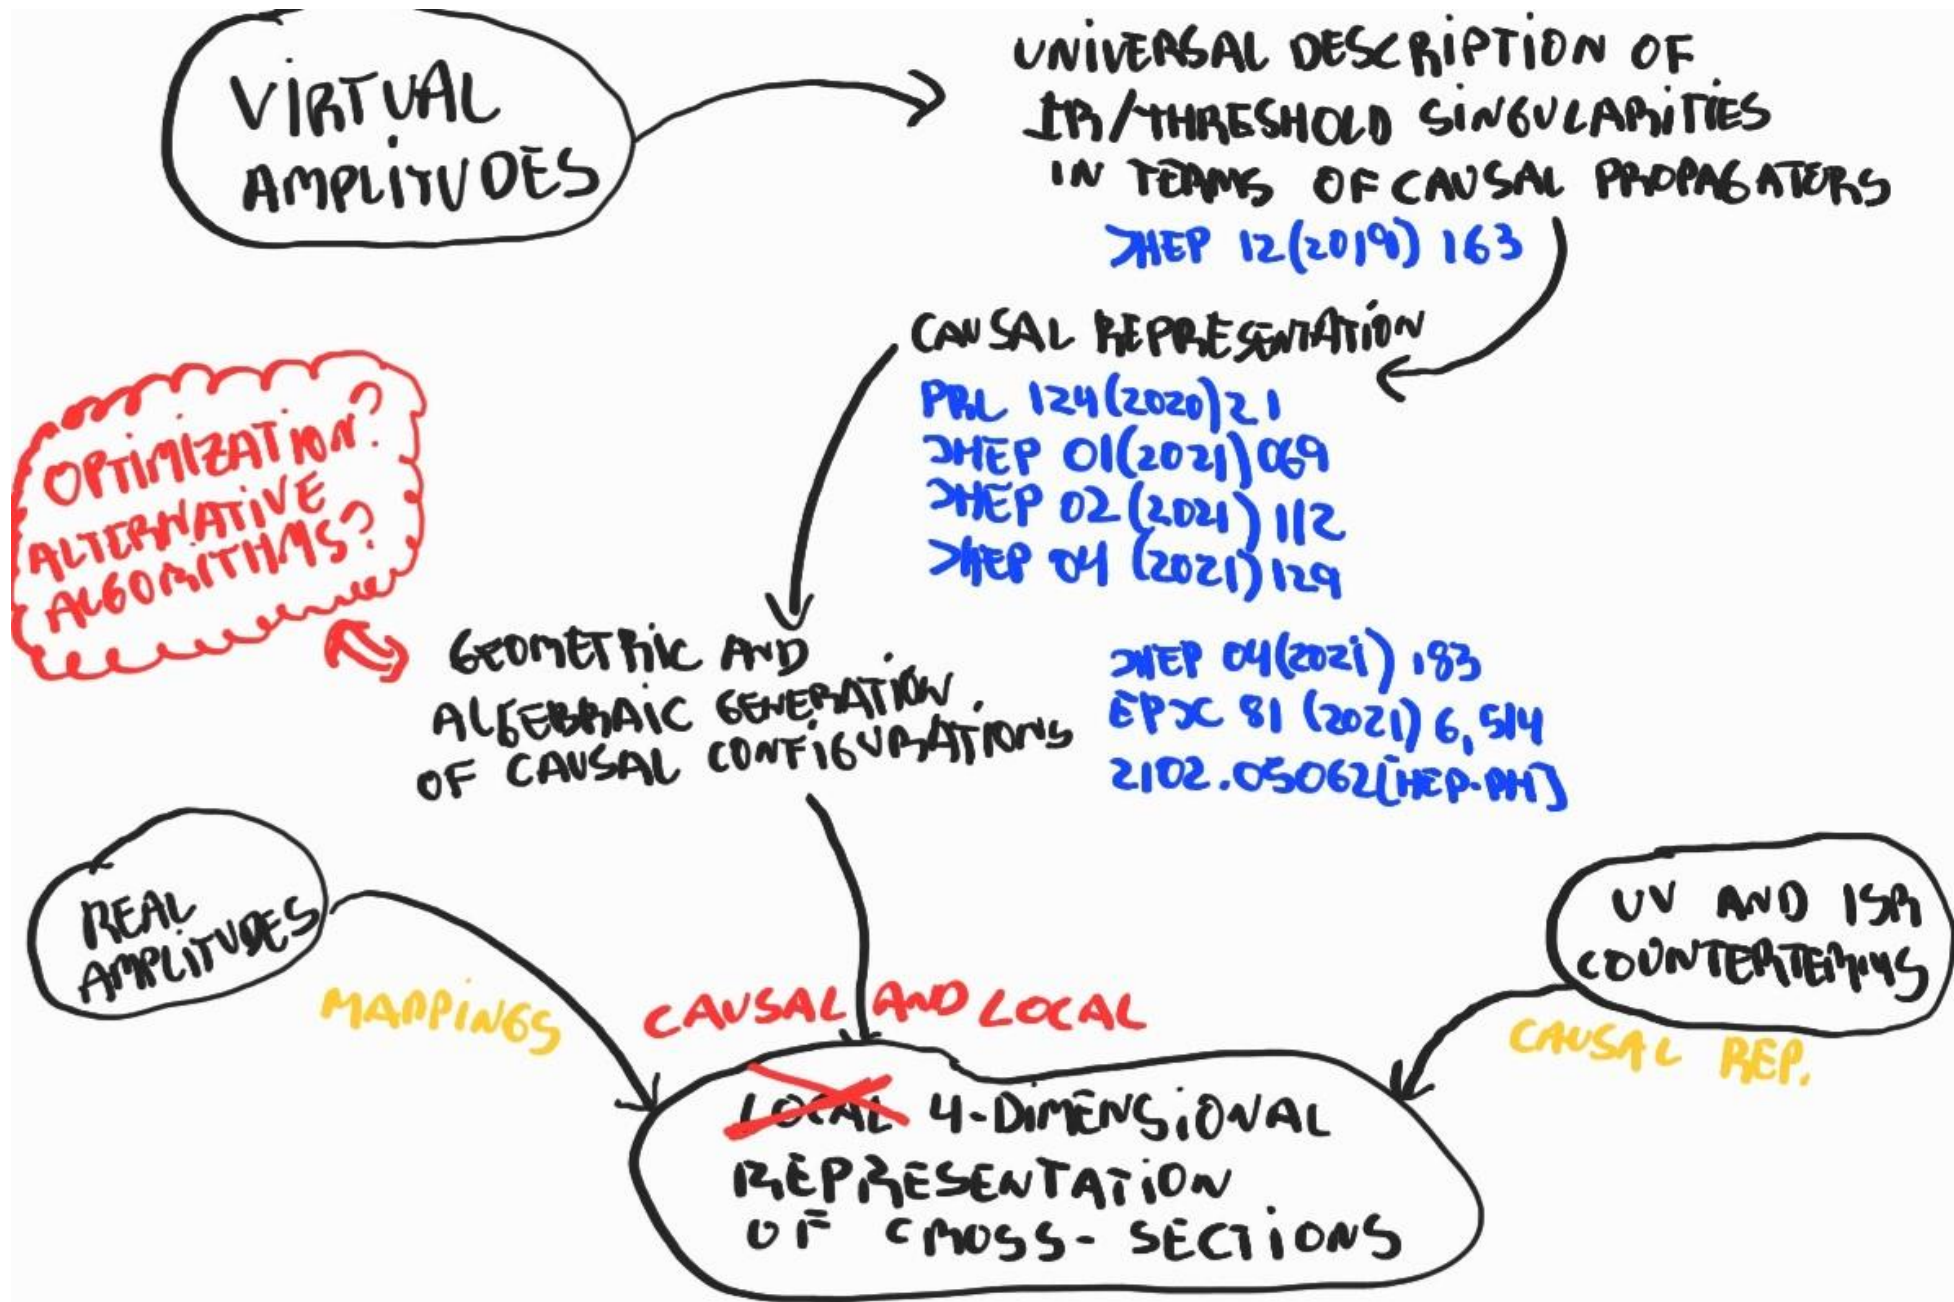 VIRTUAL
AMPLITUDES
UNIVERSAL DESCRIPTION OF
IR/THRESHOLD SINGULARITIES
IN TERMS OF CAUSAL PROPAGATORS
JHEP 12(2019) 163
CAUSAL REPRESENTATION
PRL 124(2020)21
JHEP 01(2021)069
JHEP 02(2021)112
JHEP 04(2021)129
OPTIMIZATION?
ALTERNATIVE
ALGORITHMS?
GEOMETRIC AND
ALGEBRAIC GENERATION
OF CAUSAL CONFIGURATIONS
JHEP 04(2021) 183
EPJC 81 (2021) 6, 514
2102.05062[HEP-PH]
REAL
AMPLITUDES
MAPPINGS
UV AND ISR
COUNTERTERMS
CAUSAL REP.
CAUSAL AND LOCAL
LOCAL 4-DIMENSIONAL
REPRESENTATION
OF CROSS-SECTIONS